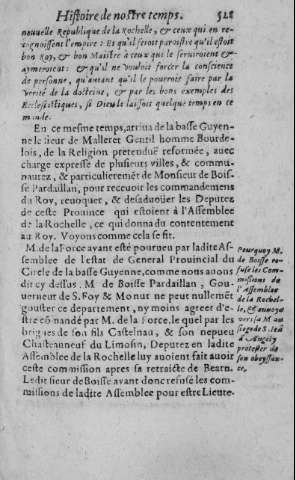 Histoire de nostre temps. 521
nouvelle Republique de la Rochelle, & ceux qui en re-
cognoissent l'empire: Et qu'il feroit paroistre qu'il estoit
bon Roy, & bon Maistre à ceux que le serviroient &
aymeroient: & qu'il ne vouloit forcer la conscience
de personne, qu'autant qu'il le pourroit faire par la
verité de la doctrine, & par les bons exemples des
Ecclesiastiques, si Dieu le laissoit quelque temps en ce
monde.
En ce mesme temps, arriva de la basse Guyen-
ne le sieur de Malleret Gentil homme Bourde-
lois, de la Religion pretenduë reformée, avec
charge expresse de plusieurs villes, & commu-
nautez, & particulieremēt de Monsieur de Bois-
se Pardaillan, pour recevoir les commandemens
du Roy, revoquer, & desadvoüer les Deputez
de ceste Province qui estoient à l'Assemblee
de la Rochelle, ce qui donna du contentement
au Roy. Voyons comme cela se fit.
M. de la Force ayant esté pourveu par ladite As-
semblee de l'estat de General Provincial du
Circle de la basse Guyenne, comme nous avons
dit cy dessus. M. de Boisse Pardaillan, Gou-
verneur de S. Foy & Monur ne peut nullemēt
gouster ce departement, ny moins agreer d'e-
stre cōmandé par M. de la Force, lequel par les
brigues de son fils Castelnau, & son nepveu
Chasteauneuf du Limosin, Deputez en ladite
Assemblee de la Rochelle luy avoient fait avoir
ceste commission apres sa retraicte de Bearn.
Ledit sieur de Boisse avant donc refusé les com-
missions de ladite Assemblee pour estre Lieute-
Pourquoy M.
de Boisse re-
fuse les Com-
missions de
l'Assemblee
de la Rochel-
le, & envoye
vers sa M. au
siege de S. Ieã
d'Angely
protester de
son obeyssan-
ce.